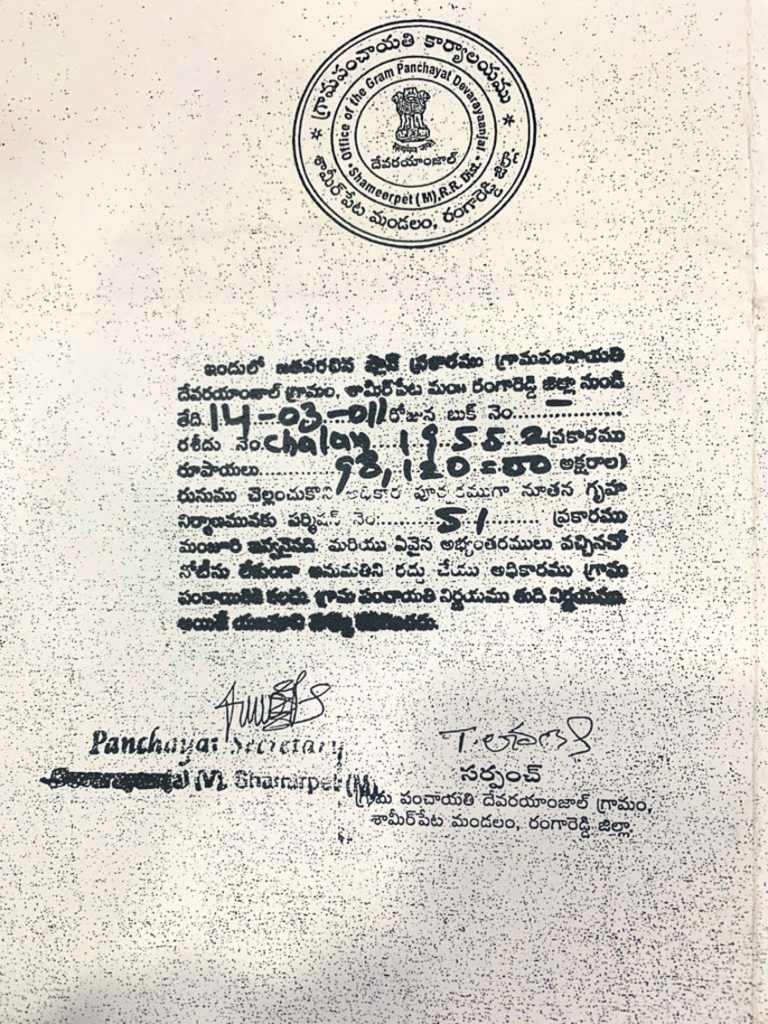 గ్రామపంచాయతి కార్యాలయము
Office of the Gram Panchayat Devarayaanjal
దేవరయాంజాల్
Shameerpet (M), R.R. Dist.
శామీర్‌పేట మండలం, రంగారెడ్డి జిల్లా
ఇందులో జతపరచిన ప్లాన్ ప్రకారము గ్రామపంచాయతి
దేవరయాంజాల్ గ్రామం, శామీర్‌పేట మం॥ రంగారెడ్డి జిల్లా నుండి
తేది 14-03-011 రోజున బుక్ నెం..................
రశీదు నెం. chalan 19552 ప్రకారము
రూపాయలు............ 98,120=00 అక్షరాల)
రుసుము చెల్లించుకొని అధికార పూర్వకముగా నూతన గృహ
నిర్మాణమునకు పర్మిషన్ నెం:........ 51 ........ ప్రకారము
మంజూరి ఇవ్వనైనది. మరియు ఏవైన అభ్యంతరములు వచ్చినచో
నోటీసు లేకుండా అనుమతిని రద్దు చేయు అధికారము గ్రామ
పంచాయితికి కలదు. గ్రామ పంచాయతి నిర్ణయము తుది నిర్ణయము.
Panchayat Secretary
(V), Shamirpet (M)
సర్పంచ్
గ్రామ పంచాయతి దేవరయాంజాల్ గ్రామం,
శామీర్‌పేట మండలం, రంగారెడ్డి జిల్లా.